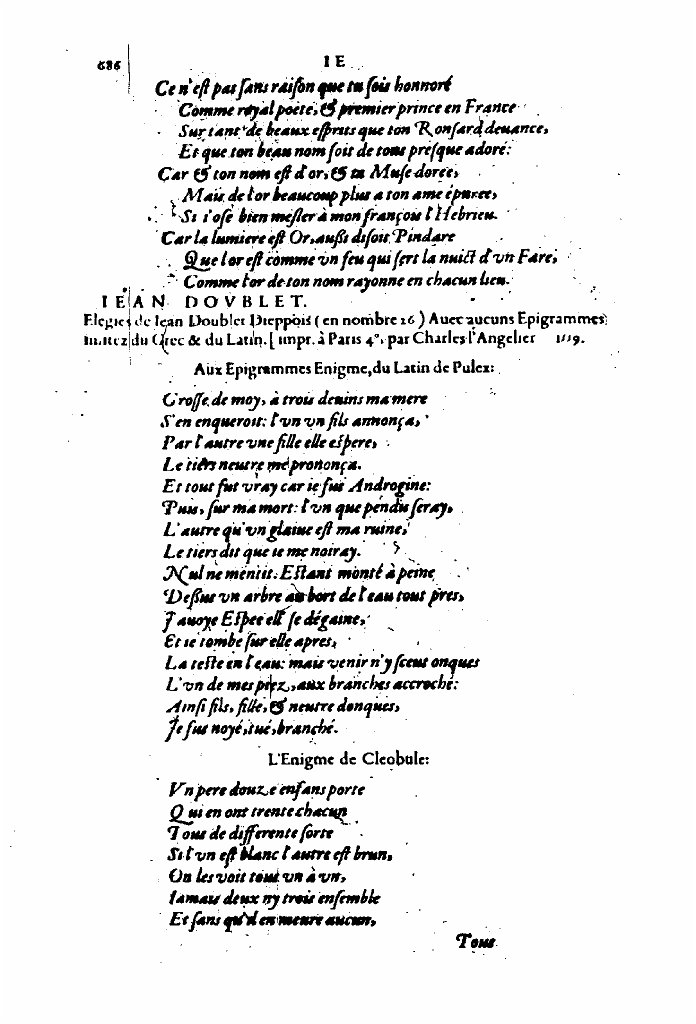 686 IE
Ce n'est pas sans raison que tu sois honnoré
Comme royal poete, & premier prince en France
Sur tant de beaux esprits que ton Ronsard deuance,
Et que ton beau nom soit de tous presque adoré:
Car & ton nom est d'or, & ta Muse dorée,
Mais de l'or beaucoup plus a ton ame épuree,
Si i'ose bien mesler à mon françois l'Hebrieu.
Car la lumiere est Or, aussi disoit Pindare
Que l'or est comme vn feu qui sert la nuict d'vn Fare,
Comme l'or de ton nom rayonne en chacun lieu.
IEAN DOVBLET.
Elegies de Iean Doublet Dieppois (en nombre 26) Auec aucuns Epigrammes
imitez du Grec & du Latin. [impr. à Paris 4°, par Charles l'Angelier 1559.
Aux Epigrammes Enigme, du Latin de Pulex:
Grosse de moy, à trois deuins ma mere
S'en enqueroit: l'vn vn fils annonça,
Par l'autre vne fille elle espere,
Le tiers neutre me prononça.
Et tout fut vray car ie fui Androgine:
Puis, sur ma mort: l'vn que pendu seray,
L'autre qu'vn glaiue est ma ruine,
Le tiers dit que ie me noiray.
Nul ne mentit. Estant monté à peine
Dessus vn arbre au bort de l'eau tout pres,
J'auoye Espee ell' se dégaine,
Et ie tombe sur elle apres,
La teste en l'eau: mais venir n'y sceut onques
L'vn de mes piez, aux branches accroché:
Ainsi fils, fille, & neutre donques,
Je fus noyé, tué, branché.
L'Enigme de Cleobule:
Vn pere douze enfans porte
Qui en ont trente chacun
Tous de differente sorte
Si l'vn est blanc l'autre est brun,
On les voit tous vn à vn,
Iamais deux ny trois ensemble
Et sans qu'il en meure aucun,
Tous